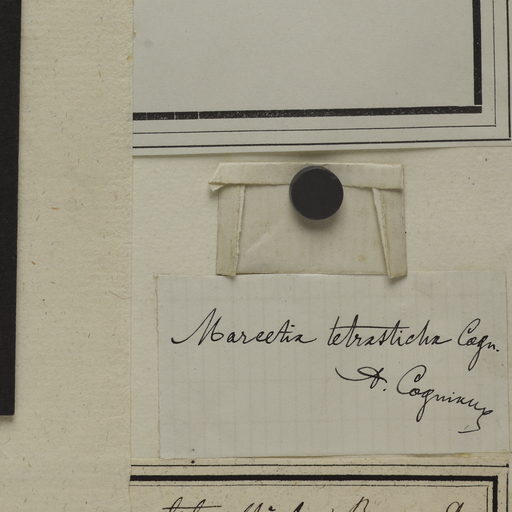 Marcetia tetrasticha Cogn.
A. Cogniaux